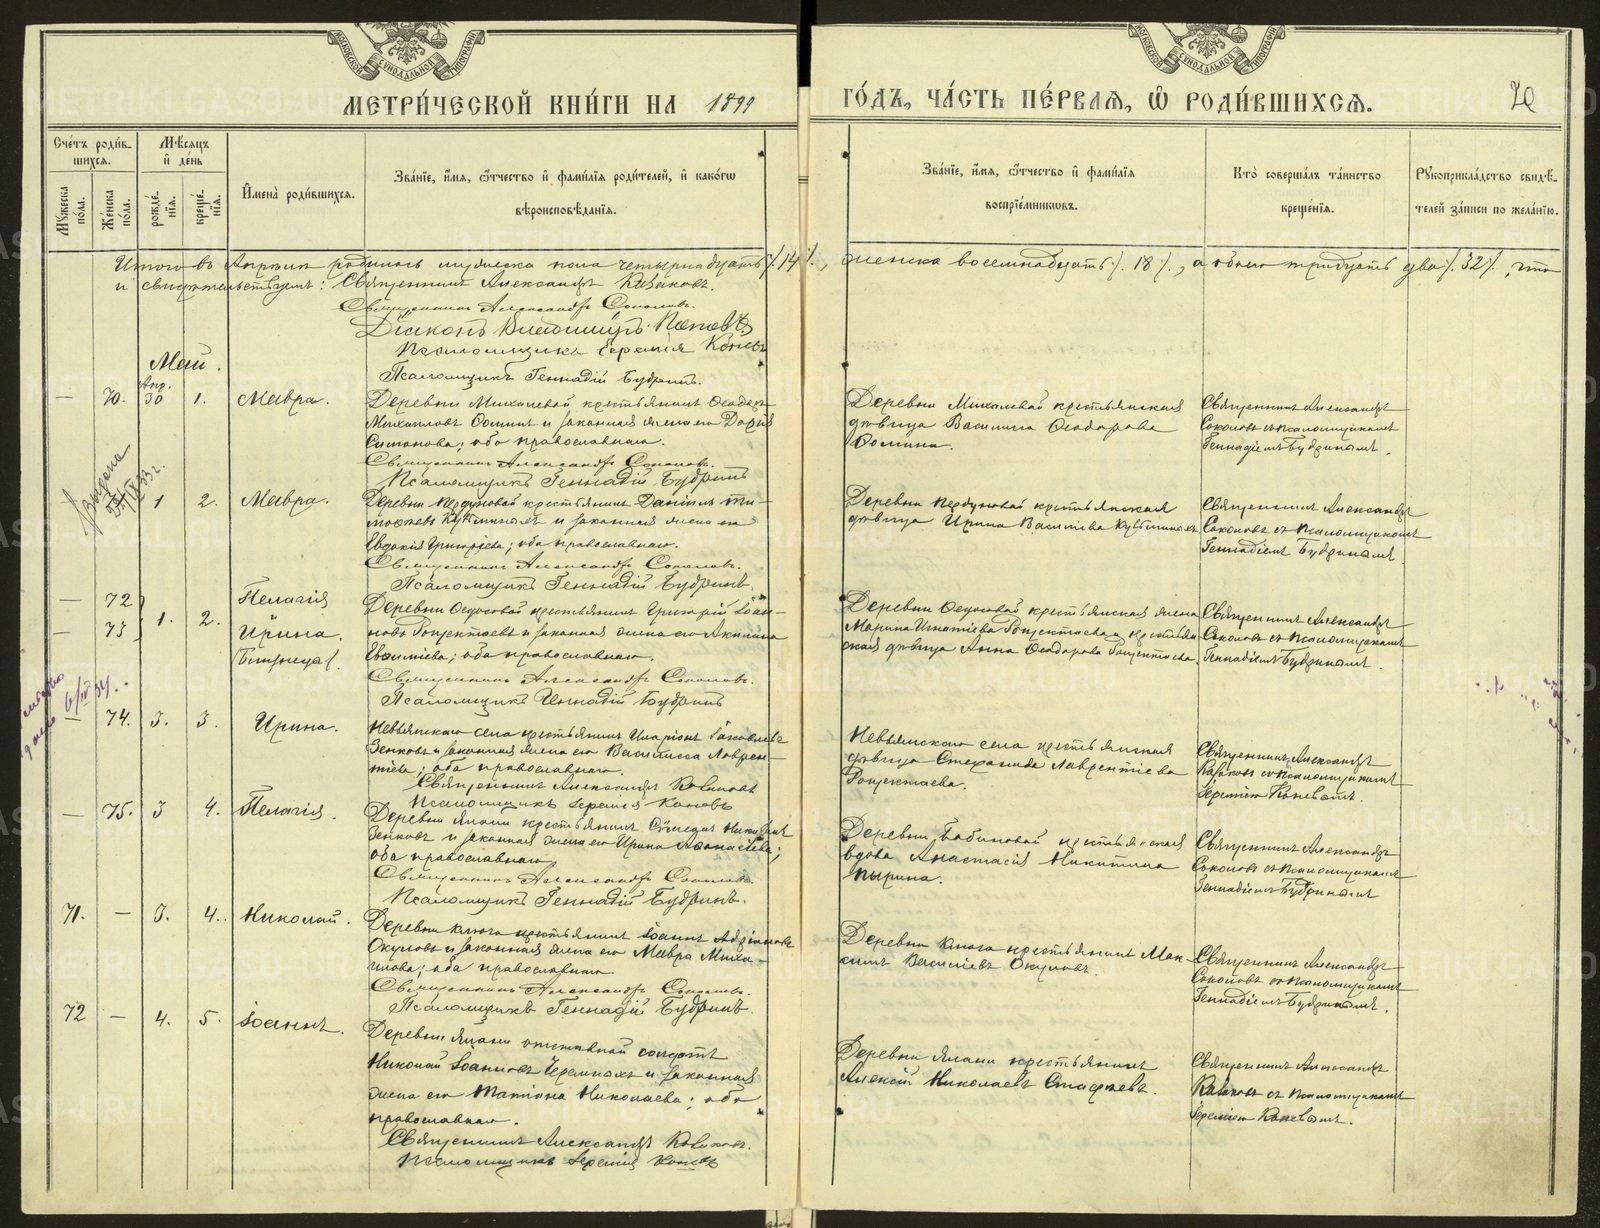 МОСКОВСКОЙ СѴНОДАЛЬНОЙ ТИПОГРАФІИ
МОСКОВСКОЙ СѴНОДАЛЬНОЙ ТИПОГРАФІИ
МЕТРИ́ЧЕСКОЙ КНИ́ГИ НА 1899
ГО́ДЪ, ЧА́СТЬ ПЕ́РВАѦ, Ѽ РОДИ́ВШИХСѦ.
Сче́тъ роди́в-
шихсѧ.
Мѣ́сѧцъ
и҆ де́нь
Мꙋжеска по́ла.
Же́нска по́ла.
рожде́-
нїѧ.
креще́-
нїѧ.
И҆мена̀ роди́вшихсѧ.
Зва́нїе, и҆́мѧ, ѻ҆́тчество и҆ фами́лїѧ роди́телей, и҆ како́гѡ
вѣроисповѣ́данїѧ.
Зва́нїе, и҆́мѧ, ѻ҆́тчество и҆ фами́лїѧ
воспрїе́мникѡвъ.
Кто̀ соверша́лъ та́инство
креще́нїѧ.
Рꙋкоприкла́дство свидѣ́-
телей за́писи по жела́нїю.
Итого въ Апрѣлѣ родилось мужеска пола четырнадцать /. 14 /., женска восемнадцать /. 18 /., а обоего тридцать два /. 32 /., что
и свидѣтельствуемъ: Священникъ Александръ Казаковъ.
Священникъ Александръ Соколовъ.
Діаконъ Владиміръ Поповъ
Псаломщикъ Іеремія Коневъ
Псаломщикъ Геннадій Будринъ.
Май.
Апр.
— 70. 30 1. Мавра.
Деревни Михалевой крестьянинъ Ѳеодоръ
Михаиловъ Ѳоминъ и законная жена его Дарія
Симонова; оба православнаго.
Священникъ Александръ Соколовъ.
Псаломщикъ Геннадій Будринъ
Деревни Михалевой крестьянская
дѣвица Василиса Ѳеодорова
Ѳомина.
Священникъ Александръ
Соколовъ съ псаломщикомъ
Геннадіемъ Будринымъ.
1 2. Мавра.
Деревни крестьянинъ Даніилъ Ти-
моѳеевъ и законная жена его
Евдокія Григорьева; оба православнаго.
Священникъ Александръ Соколовъ.
Псаломщикъ Геннадій Будринъ.
Деревни крестьянская
дѣвица Ирина Василіева
Священникъ Александръ
Соколовъ съ псаломщикомъ
Геннадіемъ Будринымъ.
— 72
— 73 1. 2. Пелагія
Ирина.
Близнецы.
Деревни Ѳедосовой крестьянинъ Григорій Іоан-
новъ и законная жена его Акилина
Евѳиміева; оба православнаго.
Священникъ Александръ Соколовъ.
Псаломщикъ Геннадій Будринъ
Деревни Ѳедосовой крестьянская жена
Марина Игнатіева и крестьян-
ская дѣвица Анна Ѳеодорова
Священникъ Александръ
Соколовъ съ псаломщикомъ
Геннадіемъ Будринымъ.
— 74. 3. 3. Ирина.
Невьянскаго села крестьянинъ Иларіонъ Іаковлевъ
Зенковъ и законная жена его Василисса Лаврен-
тіева; оба православнаго.
Священникъ Александръ Казаковъ
Псаломщикъ Іеремія Коневъ
Невьянскаго села крестьянская
дѣвица Стефанида Лаврентіева
Священникъ Александръ
Казаковъ съ псаломщикомъ
Іереміею Коневымъ.
— 75. 3 4. Пелагія.
Деревни Ялани крестьянинъ
Зенковъ и законная жена его Ирина Аѳанасіева;
оба православнаго.
Священникъ Александръ Соколовъ.
Псаломщикъ Геннадій Будринъ.
Деревни Бабиновой крестьянская
вдова Анастасія Никитина
Пырина.
Священникъ Александръ
Соколовъ съ псаломщикомъ
Геннадіемъ Будринымъ
71. — 3. 4. Николай.
Деревни Ключа крестьянинъ Іоаннъ Адріановъ
Окуловъ и законная жена его Мавра Миха-
илова; оба православнаго
Священникъ Александръ Соколовъ.
Псаломщикъ Геннадій Будринъ.
Деревни Ключа крестьянинъ Мак-
симъ Василіевъ Окуловъ.
Священникъ Александръ
Соколовъ съ псаломщикомъ
Геннадіемъ Будринымъ.
72 — 4. 5. Іоаннъ.
Деревни Ялани отставной солдатъ
Николай Іоанновъ Черемныхъ и законная
жена его Татіана Николаева; оба
православнаго.
Священникъ Александръ Казаковъ.
Псаломщикъ Іеремія Коневъ
Деревни Ялани крестьянинъ
Алексій Николаевъ
Священникъ Александръ
Казаковъ съ псаломщикомъ
Іереміею Коневымъ.